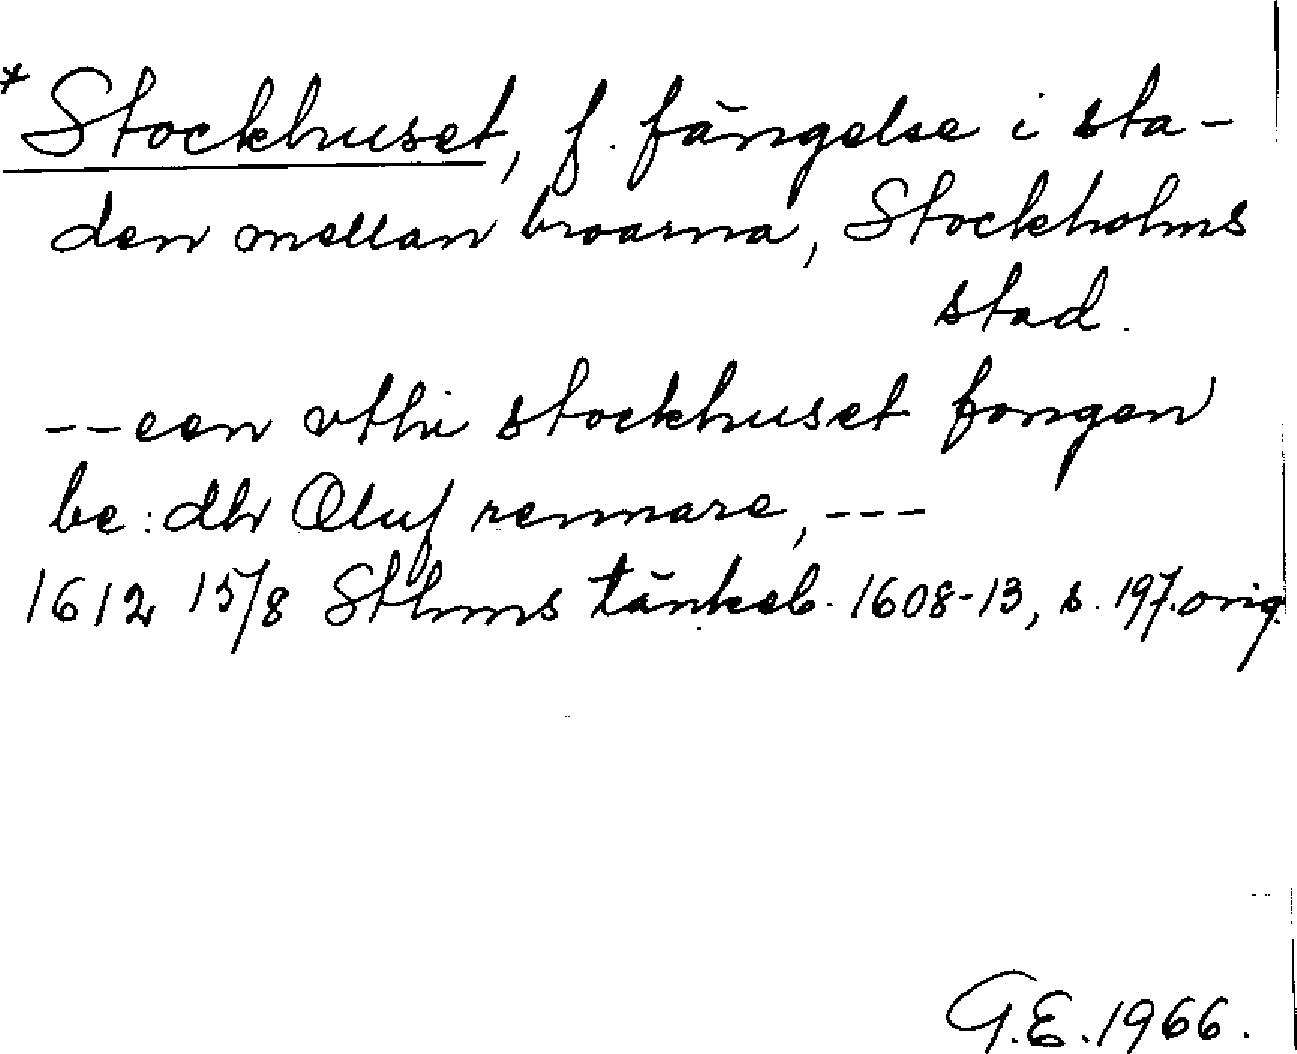 * Stockhuset, f. fängelse i sta-
den mellan broarna, Stockholms
stad.
--een vthi stockhuset fongen
be: dhr Oluf rennare, ---
1612 15/8 Sthms tänkeb. 1608-13, s. 197. orig.
G.E. 1966.